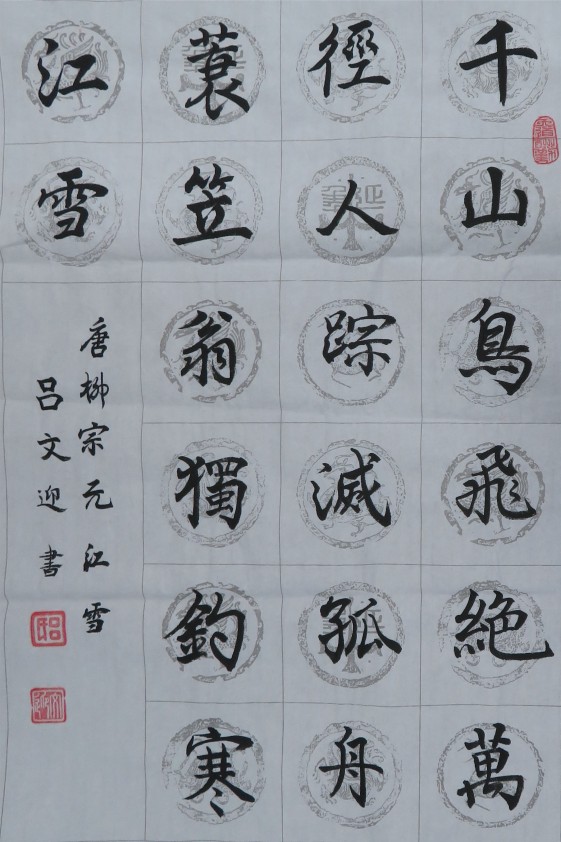 千山鳥飛絶萬
徑人踪滅孤舟
蓑笠翁獨釣寒
江雪
唐柳宗元江雪
吕文迎書